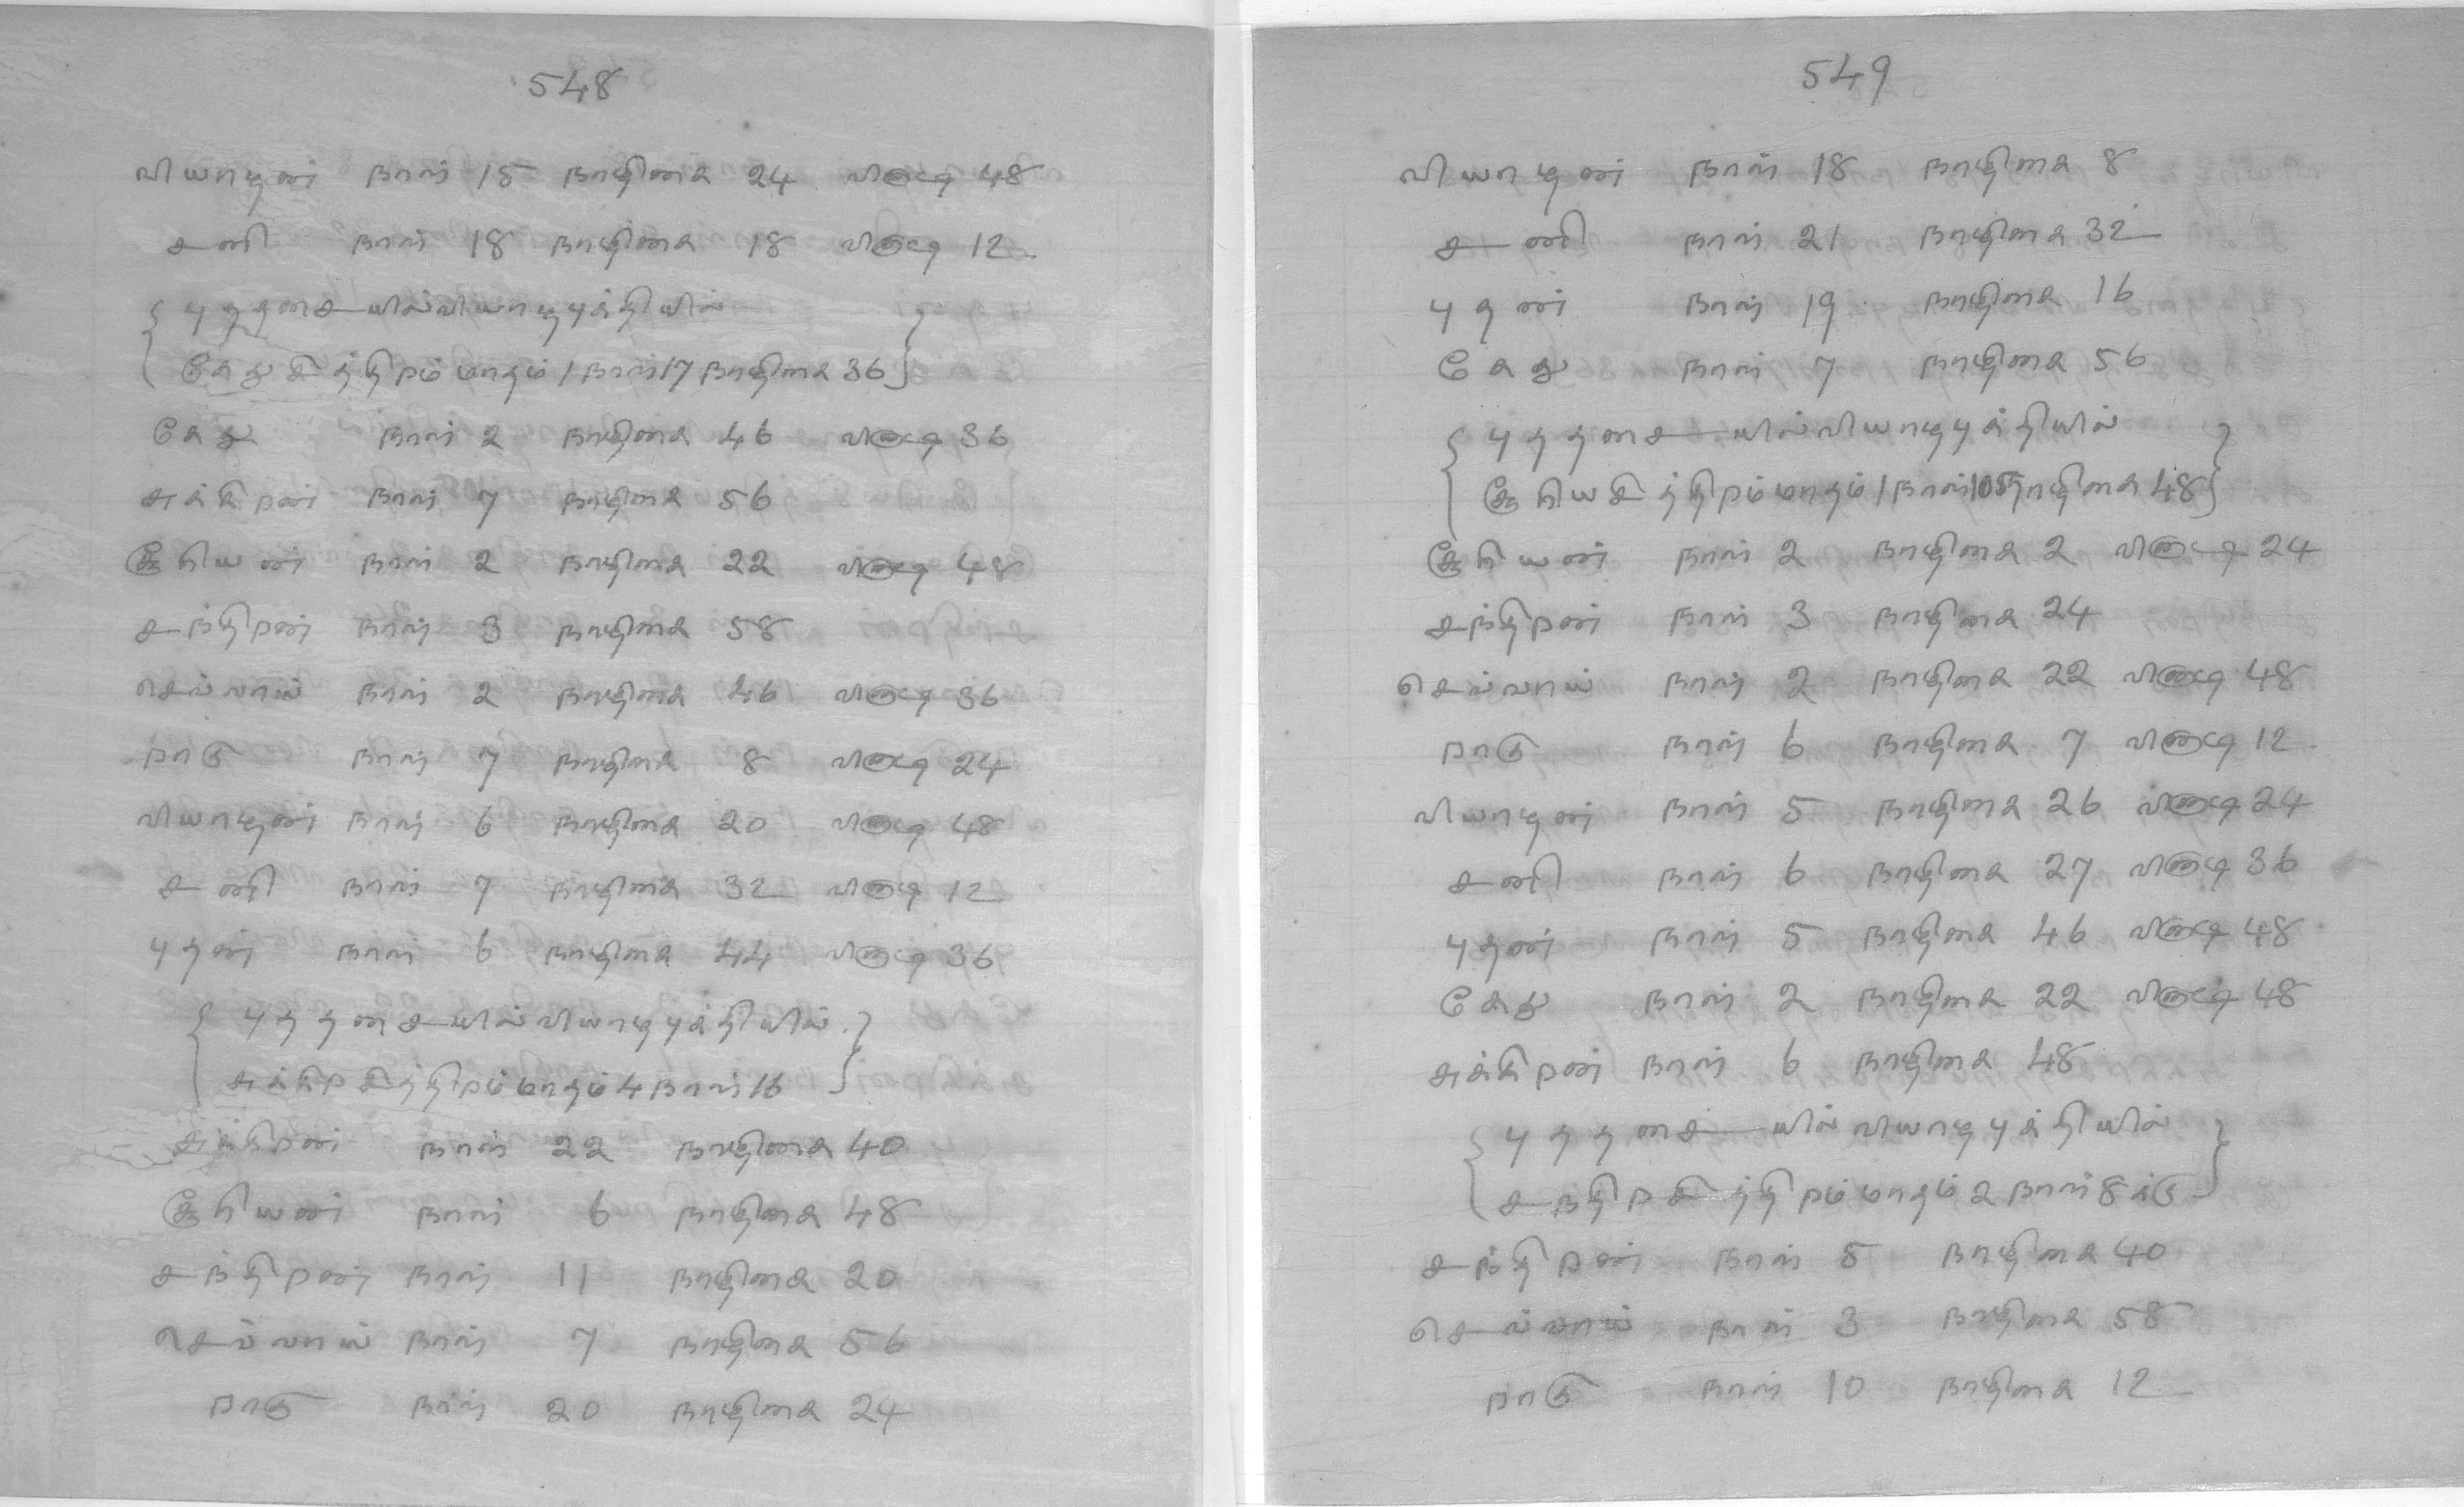 548
வியாழன் நாள் 15 நாழிகை 24 விகுடி 48
சனி நாள் 18 நாழிகை 18 விகுடி 12
புததசையில்வியாழபுக்தியில்
கேதுசித்திரம் மாதம் 1 நாள் 17 நாழிகை 36
கேது நாள் 2 நாழிகை 46 விகுடி 36
சுக்கிரன் நாள் 7 நாழிகை 56
சூரியன் நாள் 2 நாழிகை 22 விகுடி 48
சந்திரன் நாள் 3 நாழிகை 58
செவ்வாய் நாள் 2 நாழிகை 46 விகுடி 36
ராகு நாள் 7 நாழிகை 8 விகுடி 24
வியாழன் நாள் 6 நாழிகை 20 விகுடி 48
சனி நாள் 7 நாழிகை 32 விகுடி 12
புதன் நாள் 6 நாழிகை 44 விகுடி 36
புததசையில் வியாழபுக்தியில்
சுக்கிரசித்திரம் மாதம் 4 நாள் 16
சுக்கிரன் நாள் 22 நாழிகை 40
சூரியன் நாள் 6 நாழிகை 48
சந்திரன் நாள் 11 நாழிகை 20
செவ்வாய் நாள் 7 நாழிகை 56
ராகு நாள் 20 நாழிகை 24
549
வியாழன் நாள் 18 நாழிகை 8
சனி நாள் 21 நாழிகை 32
புதன் நாள் 19 நாழிகை 16
கேது நாள் 7 நாழிகை 56
புததசையில்வியாழபுக்தியில்
சூரியசித்திரம் மாதம் 1 நாள் 10 நாழிகை 48
சூரியன் நாள் 2 நாழிகை 2 விகுடி 24
சந்திரன் நாள் 3 நாழிகை 24
செவ்வாய் நாள் 2 நாழிகை 22 விகுடி 48
ராகு நாள் 6 நாழிகை 7 விகுடி 12
வியாழன் நாள் 5 நாழிகை 26 விகுடி 24
சனி நாள் 6 நாழிகை 27 விகுடி 36
புதன் நாள் 5 நாழிகை 46 விகுடி 48
கேது நாள் 2 நாழிகை 22 விகுடி 48
சுக்கிரன் நாள் 6 நாழிகை 48
புததசையில் வியாழபுக்தியில்
சந்திரசித்திரம் மாதம் 2 நாள் 8 க்கு
சந்திரன் நாள் 5 நாழிகை 40
செவ்வாய் நாள் 3 நாழிகை 58
ராகு நாள் 10 நாழிகை 12